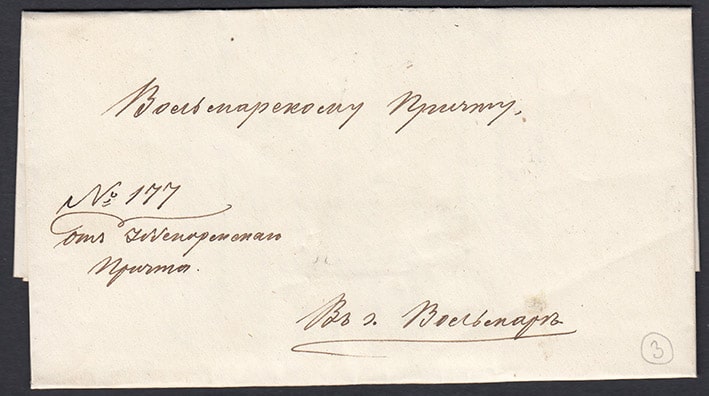 Вольмарскому Причту,
№ 177
отъ
Причта.
Въ г. Вольмаръ
3